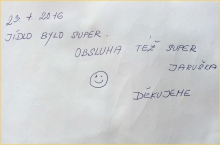 23. 7 2016
JÍDLO BYLO SUPER.
OBSLUHA TÉŽ SUPER
JARUŠKA
DĚKUJEME